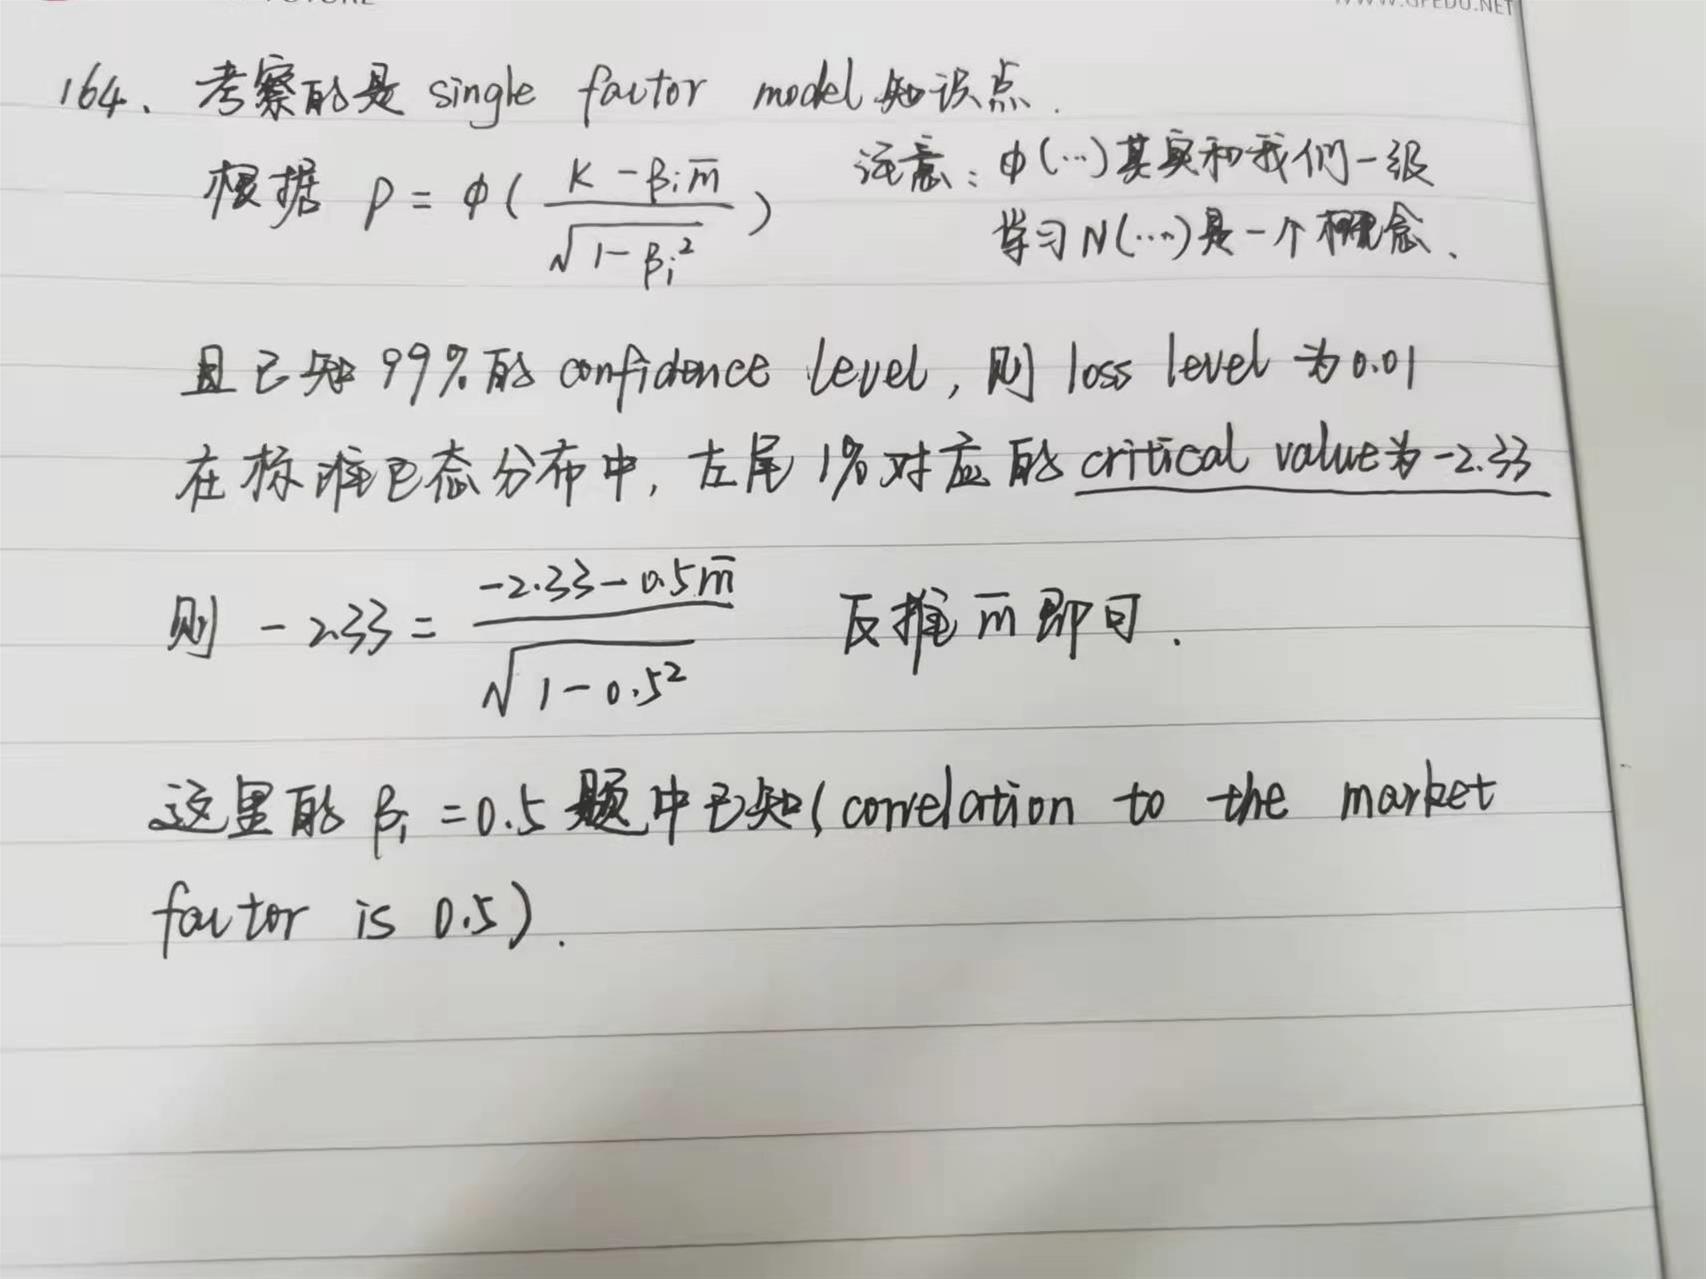 WWW.GFEDU.NET
164. 考察的是 single factor model 知识点.
根据 P = φ( (K - βi m̅) / √(1 - βi²) )
注意: φ(…)其实和我们一级
学习N(…)是一个概念.
且已知99%的 confidence level, 则 loss level 为0.01
在标准正态分布中, 左尾1%对应的 critical value为-2.33
则 -2.33 = (-2.33 - 0.5m̅) / √(1 - 0.5²) 反推 m̅ 即可.
这里的 βi = 0.5 题中已知(correlation to the market
factor is 0.5).